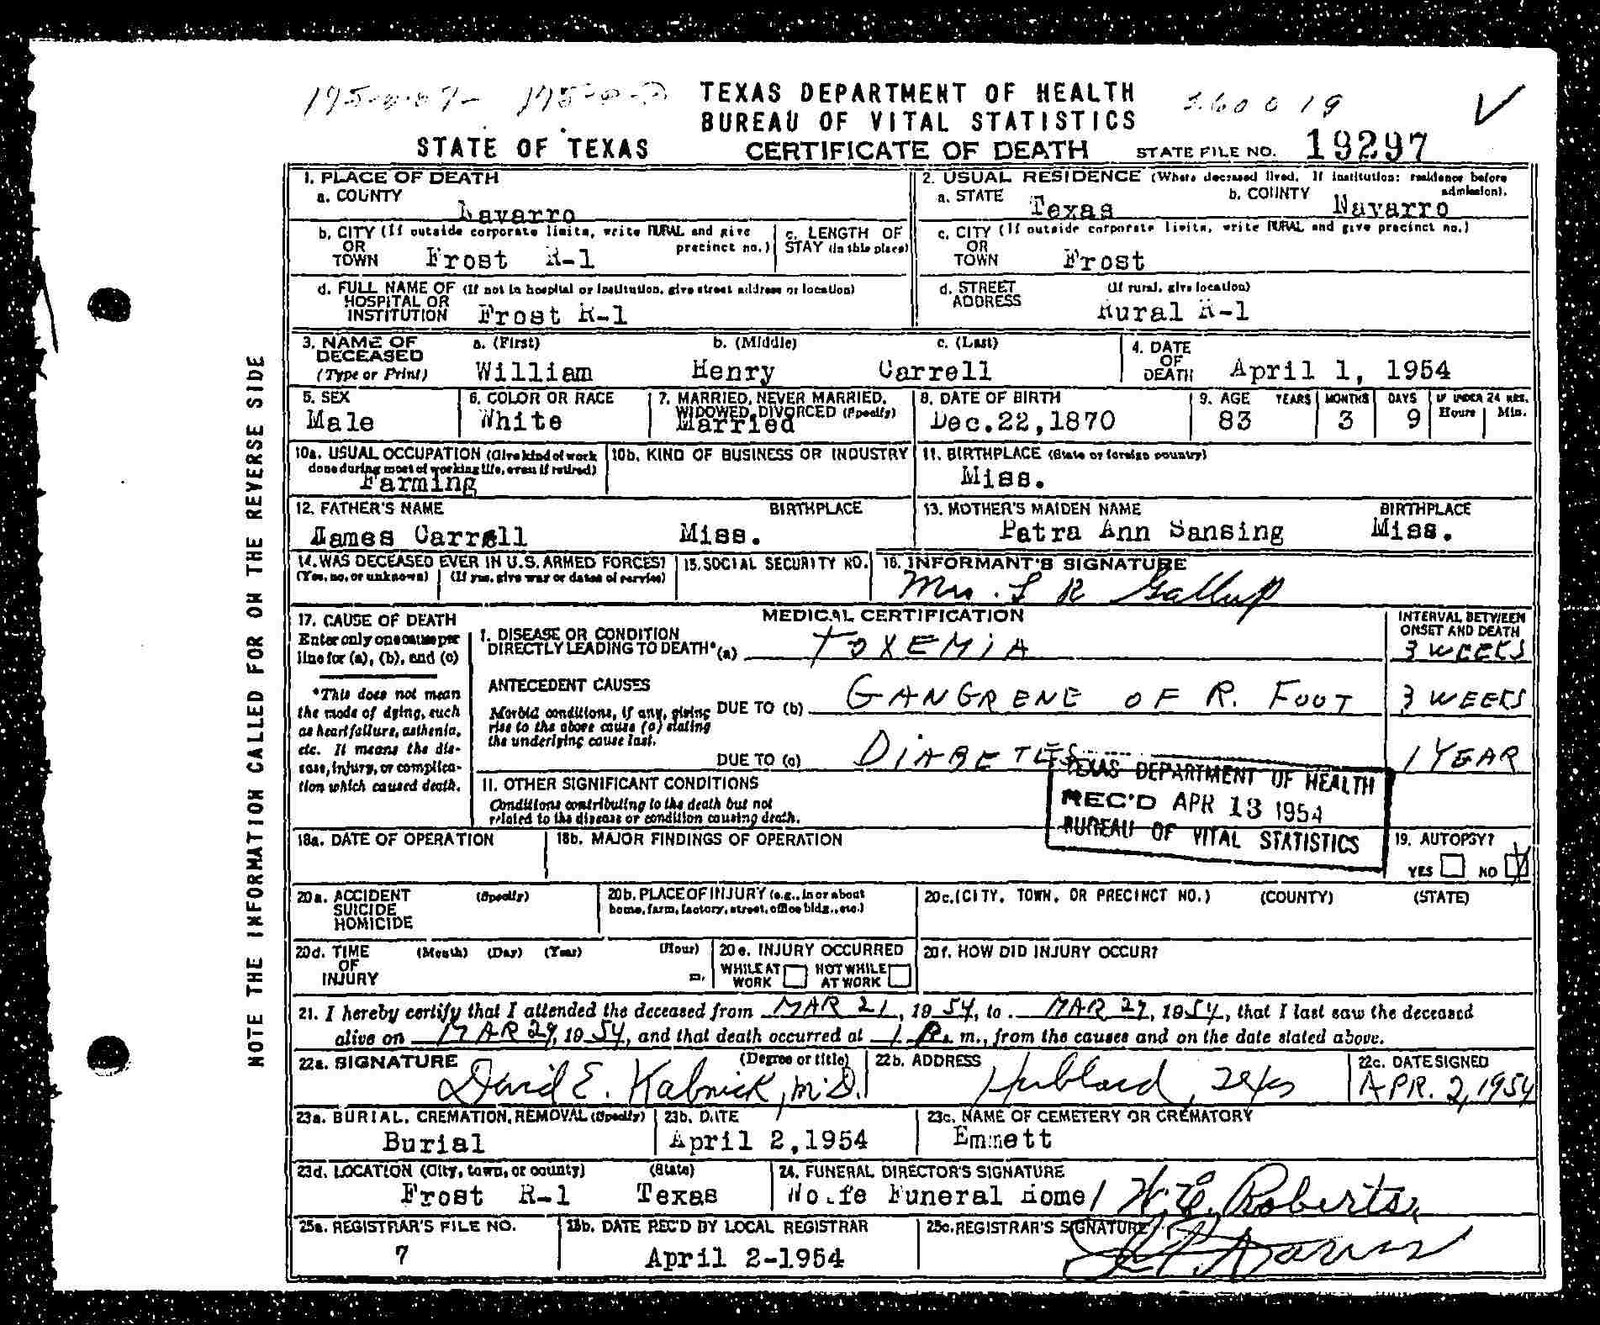 TEXAS DEPARTMENT OF HEALTH
BUREAU OF VITAL STATISTICS
STATE OF TEXAS CERTIFICATE OF DEATH STATE FILE NO. 19297
1. PLACE OF DEATH
a. COUNTY Navarro
2. USUAL RESIDENCE (Where deceased lived. If institution: residence before admission).
a. STATE Texas b. COUNTY Navarro
b. CITY (If outside corporate limits, write RURAL and give precinct no.) OR TOWN Frost R-1
c. LENGTH OF STAY (in this place)
c. CITY (If outside corporate limits, write RURAL and give precinct no.) OR TOWN Frost
d. FULL NAME OF (If not in hospital or institution, give street address or location) HOSPITAL OR INSTITUTION Frost R-1
d. STREET ADDRESS (If rural, give location) Rural R-1
3. NAME OF DECEASED (Type or Print) a. (First) William b. (Middle) Henry c. (Last) Carrell
4. DATE OF DEATH April 1, 1954
5. SEX Male
6. COLOR OR RACE White
7. MARRIED, NEVER MARRIED, WIDOWED, DIVORCED (Specify) Married
8. DATE OF BIRTH Dec.22,1870
9. AGE YEARS 83 MONTHS 3 DAYS 9 IF UNDER 24 HRS. Hours Min.
10a. USUAL OCCUPATION (Give kind of work done during most of working life, even if retired) Farming
10b. KIND OF BUSINESS OR INDUSTRY
11. BIRTHPLACE (State or foreign country) Miss.
12. FATHER'S NAME BIRTHPLACE
James Carrell Miss.
13. MOTHER'S MAIDEN NAME BIRTHPLACE
Patra Ann Sansing Miss.
14. WAS DECEASED EVER IN U.S. ARMED FORCES?
(Yes, no, or unknown) (If yes, give war or dates of service)
15. SOCIAL SECURITY NO.
16. INFORMANT'S SIGNATURE
Mrs. L R Gallup
17. CAUSE OF DEATH
Enter only one cause per line for (a), (b), and (c)
*This does not mean the mode of dying, such as heart failure, asthenia, etc. It means the disease, injury, or complication which caused death.
MEDICAL CERTIFICATION
INTERVAL BETWEEN ONSET AND DEATH
I. DISEASE OR CONDITION DIRECTLY LEADING TO DEATH*(a) TOXEMIA 3 WEEKS
ANTECEDENT CAUSES
Morbid conditions, if any, giving rise to the above cause (a) stating the underlying cause last.
DUE TO (b) GANGRENE OF R. FOOT 3 WEEKS
DUE TO (c) DIABETES 1 YEAR
II. OTHER SIGNIFICANT CONDITIONS
Conditions contributing to the death but not related to the disease or condition causing death.
TEXAS DEPARTMENT OF HEALTH
REC'D APR 13 1954
BUREAU OF VITAL STATISTICS
18a. DATE OF OPERATION
18b. MAJOR FINDINGS OF OPERATION
19. AUTOPSY?
YES NO
20a. ACCIDENT SUICIDE HOMICIDE (Specify)
20b. PLACE OF INJURY (e.g., in or about home, farm, factory, street, office bldg., etc.)
20c. (CITY, TOWN, OR PRECINCT NO.) (COUNTY) (STATE)
20d. TIME OF INJURY (Month) (Day) (Year) (Hour) m.
20e. INJURY OCCURRED
WHILE AT WORK NOT WHILE AT WORK
20f. HOW DID INJURY OCCUR?
21. I hereby certify that I attended the deceased from MAR 21, 1954, to MAR 29, 1954, that I last saw the deceased
alive on MAR 29, 1954, and that death occurred at 1 P. m., from the causes and on the date stated above.
22a. SIGNATURE (Degree or title) David E. M.D.
22b. ADDRESS Hubbard, Texas
22c. DATE SIGNED APR. 2, 1954
23a. BURIAL, CREMATION, REMOVAL (Specify) Burial
23b. DATE April 2,1954
23c. NAME OF CEMETERY OR CREMATORY Emmett
23d. LOCATION (City, town, or county) (State)
Frost R-1 Texas
24. FUNERAL DIRECTOR'S SIGNATURE
Wolfe Funeral Home/ W. E. Roberts
25a. REGISTRAR'S FILE NO. 7
25b. DATE REC'D BY LOCAL REGISTRAR April 2-1954
25c. REGISTRAR'S SIGNATURE
NOTE THE INFORMATION CALLED FOR ON THE REVERSE SIDE